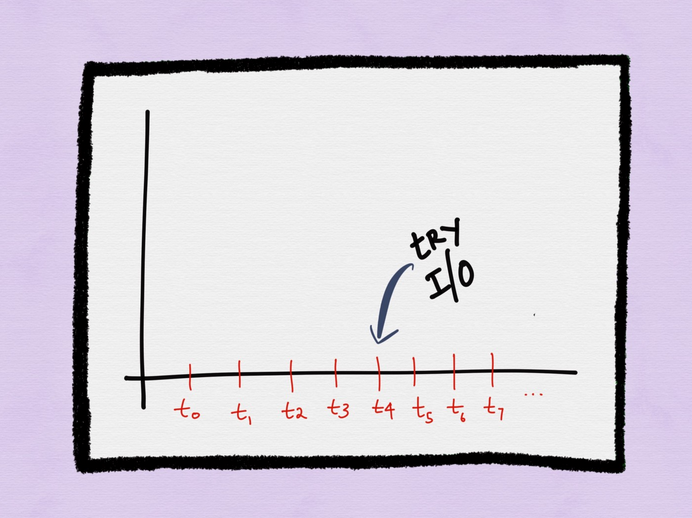 tRY
I/O
t₀ t₁ t₂ t₃ t₄ t₅ t₆ t₇ ...